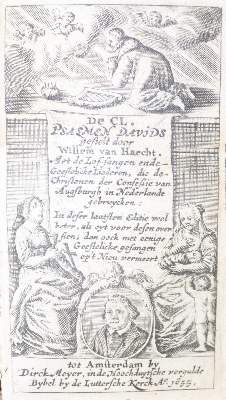 De CL.
PSALMEN DAVIDS
gestelt door
Willem van Haecht.
Met de Lof-sangen ende
Geestelicke Liederen, die de
Christenen der Confessie van
Augsburgh in Nederlandt
gebruycken.
In deser laetsten Editie wel
beter, als oyt voor desen over
sien; dan oock met eenige
Geestelicke gesangen
op't Nieu vermeert
tot Amsterdam by
Dirck Meyer, in de Hoochduytsche vergulde
Bybel by de Lutersche Kerck. A°.